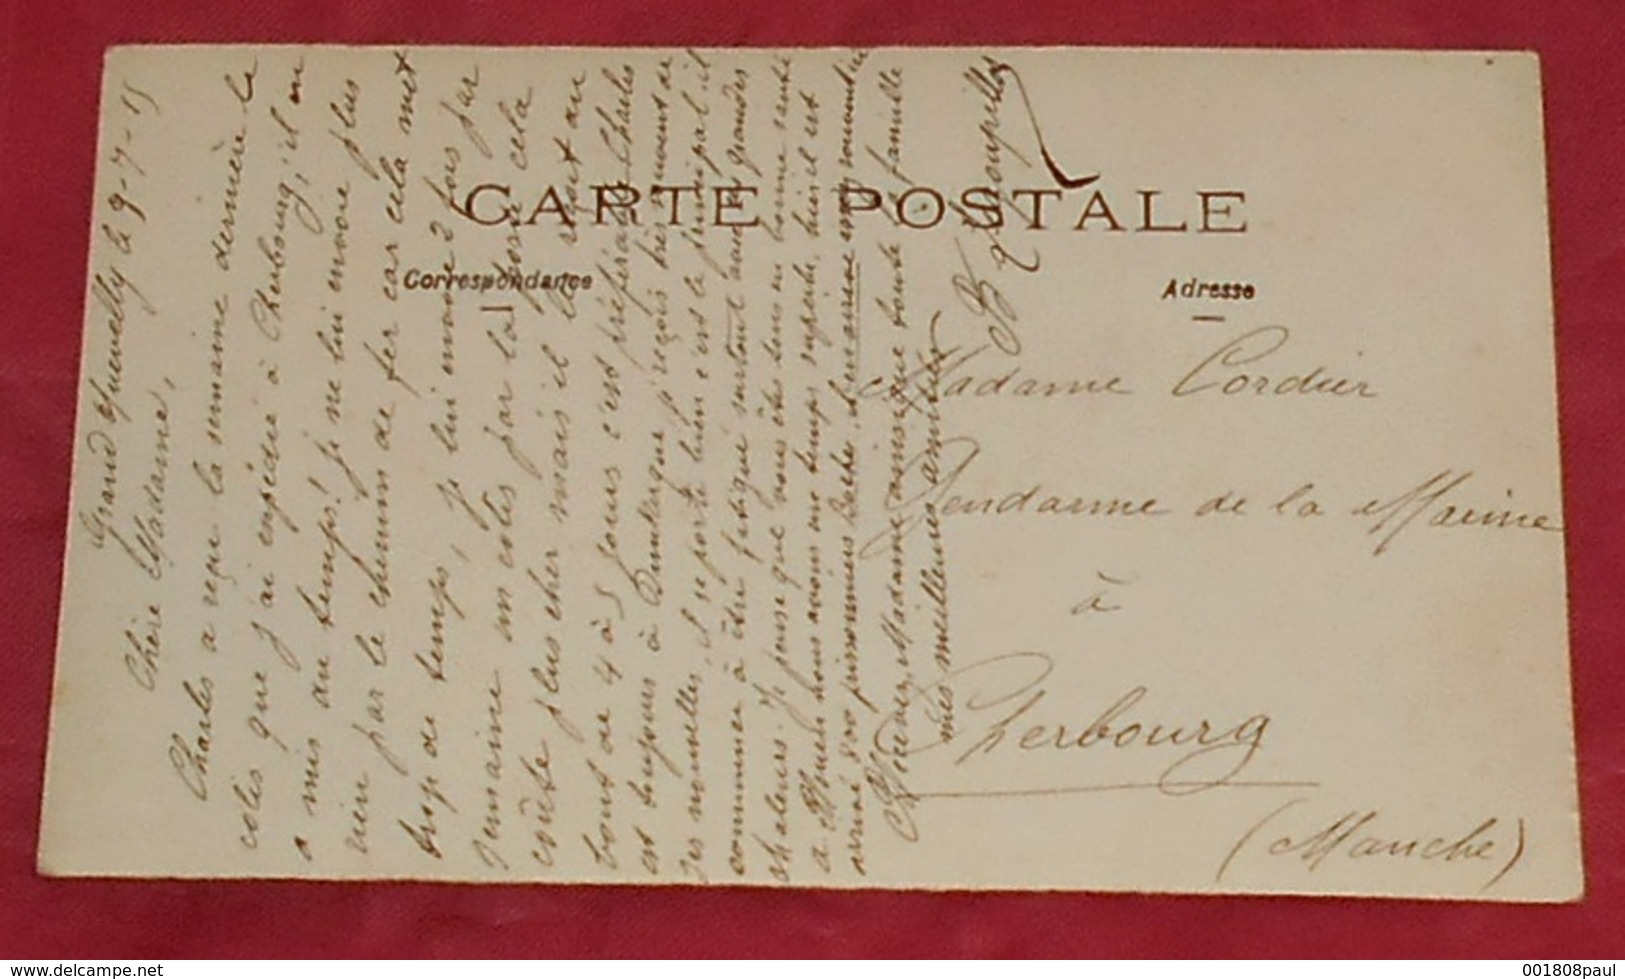 CARTE POSTALE
Correspondance
Adresse
Grand le 9-7-15
Chère Madame,
Charles a reçu la semaine dernière le
colis que j'ai expédié à Cherbourg, il en
a mis du temps! je ne lui envoie plus
rien par le chemin de fer car cela met
trop de temps, je lui envoie 2 fois par
semaine un colis par la poste cela
coûte plus cher mais il le reçoit au
bout de 4 à 5 jours c'est préférable. Charles
est toujours à Dunkerque j'reçois très souvent de
ses nouvelles, il se porte bien c'est le principal, il
commence à être fatigué surtout avec les grandes
chaleurs. Je pense que vous êtes tous en bonne santé
a nous avons un temps superbe, hier il est
arrivé 800 prisonniers
Recevez, Madame ainsi que toute la famille
mes meilleures amitiés
Madame Cordier
Gendarme de la Marine
à
Cherbourg
(Manche)
delcampe.net
001808paul